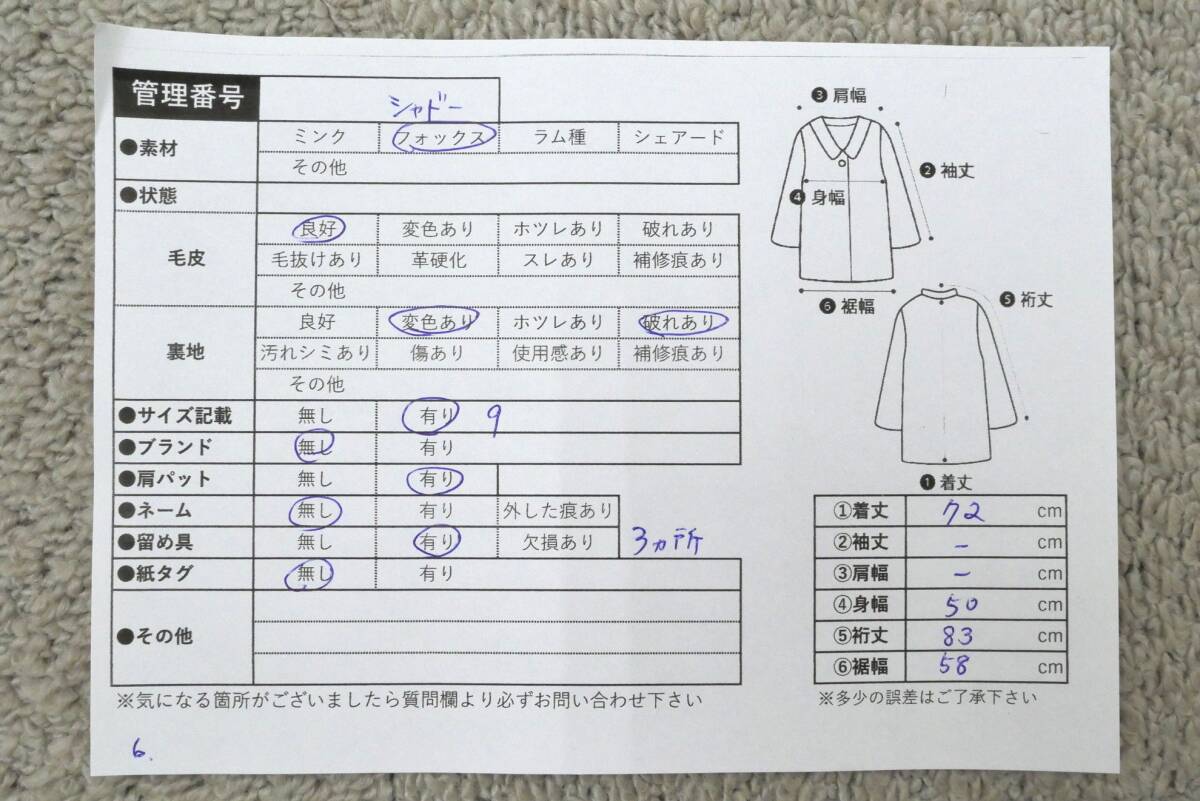 管理番号
シャドー
●素材 ミンク フォックス ラム種 シェアード
その他
●状態
毛皮 良好 変色あり ホツレあり 破れあり
毛抜けあり 革硬化 スレあり 補修痕あり
その他
裏地 良好 変色あり ホツレあり 破れあり
汚れシミあり 傷あり 使用感あり 補修痕あり
その他
●サイズ記載 無し 有り 9
●ブランド 無し 有り
●肩パット 無し 有り
●ネーム 無し 有り 外した痕あり
●留め具 無し 有り 欠損あり 3ヵ所
●紙タグ 無し 有り
●その他
※気になる箇所がございましたら質問欄より必ずお問い合わせ下さい
6.
❸肩幅
❷袖丈
❹身幅
❻裾幅
❺裄丈
❶着丈
①着丈 72 cm
②袖丈 - cm
③肩幅 - cm
④身幅 50 cm
⑤裄丈 83 cm
⑥裾幅 58 cm
※多少の誤差はご了承下さい